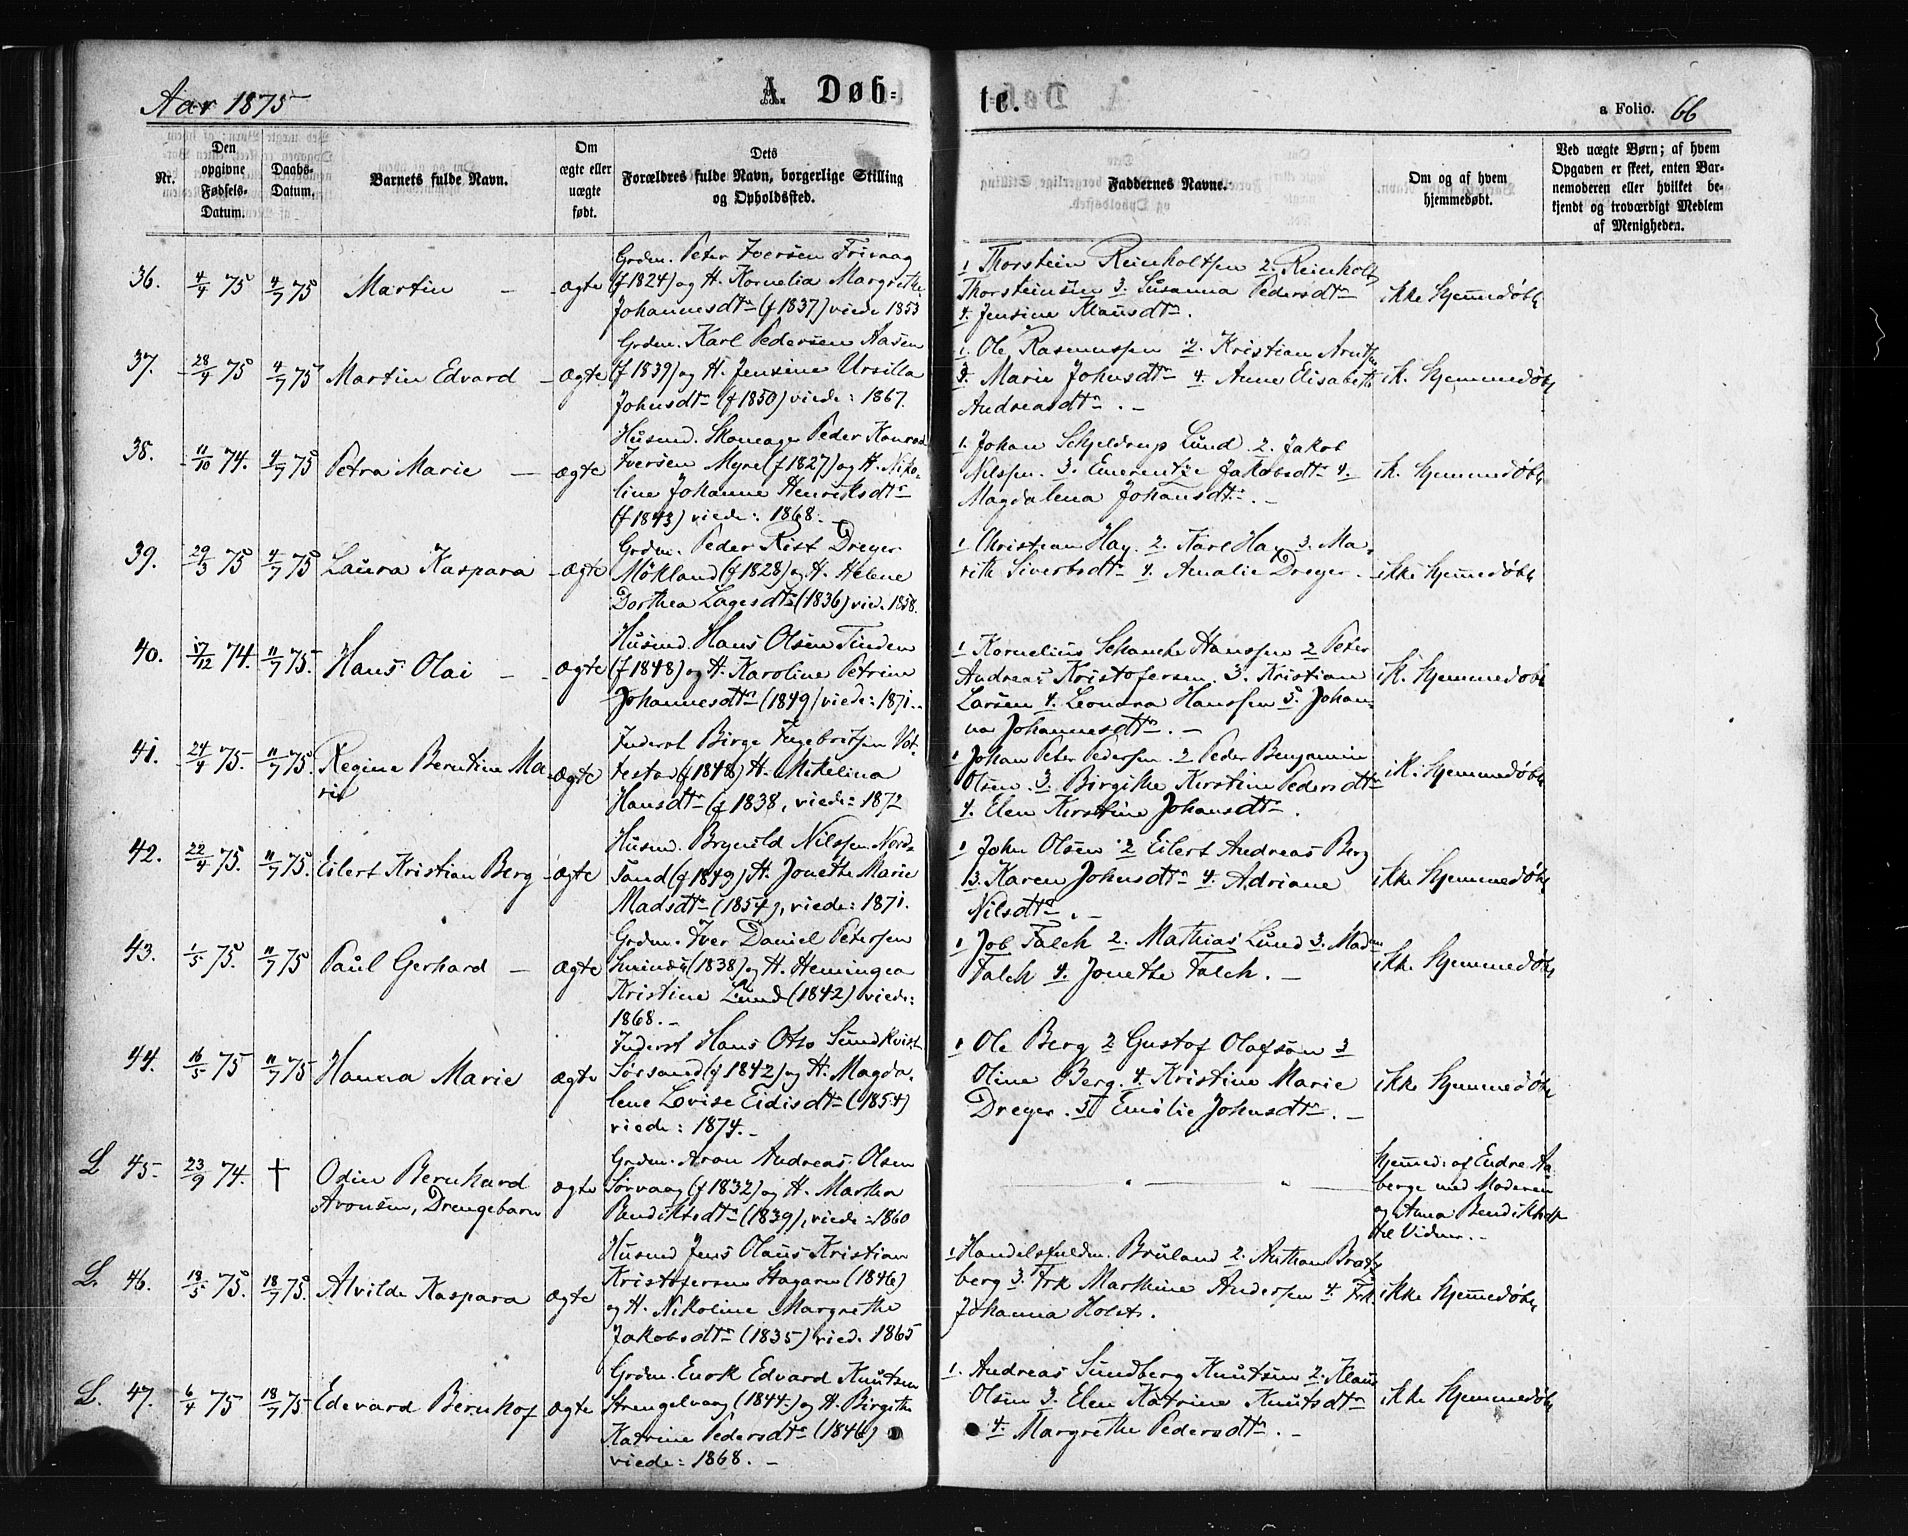 Aar 1875
A. Døb-
te.
a Folio. 66
Nr.
Den opgivne Fødsels-Datum.
Daabs-Datum.
Barnets fulde Navn.
Om ægte eller uægte født.
Dets Forældres fulde Navn, borgerlige Stilling og Opholdssted.
Faddernes Navne.
Om og af hvem hjemmedøbt.
Ved uægte Børn; af hvem Opgaven er skeet, enten Barnemoderen eller hvilket bekjendt og troværdigt Medlem af Menigheden.
36. 4/4 75 4/7 75 Martin — ægte
Grdm. Peter Iversen Frivaag
(f 1824) og H. Kornelia Margrethe
Johannesdtr (f 1837) viede 1853
1 Thorstein Reinholtsen 2. Reinholt
Thorsteinsen 3. Susanna Pedersdtr
4. Jensine Klausdtr.
ikke hjemmedøbt
37. 28/4 75 4/7 75 Martin Edvard — ægte
Grdm. Karl Pedersen Aasen
(f 1839) og H. Jensine Ursilla
Johnsdtr (f 1850) viede: 1867.
1. Ole Rasmussen 2. Kristian Arntsen
3. Marie Johnsdtr 4. Anne Elisabeth
Andreasdtr. —
ik. hjemmedøbt
38. 11/10 74. 4/7 75 Petra Marie — ægte
Husmd. Skomager Peder Konrad
Iversen Myre (f 1827) og H. Niko-
line Johanne Henriksdtr
(f 1843) viede: 1868. —
1. Johan Schjeldrup Lund 2. Jakob
Nilssen. 3. Emerentze Jakobsdtr 4.
Magdalena Johansdtr. —
ik. hjemmedøbt
39. 29/3 75 4/7 75 Laura Kaspara — ægte
Grdm. Peder Rist Dreyer
Mökland (f 1828) og H. Helene
Dorthea Lagesdtr (1836) vied. 1858.
1 Christian Hay. 2. Karl Hay 3. Ma-
rith Sivertsdtr 4. Amalie Dreyer. —
ikke hjemmedøbt
40. 17/12 74. 11/7 75. Hans Olai — ægte
Husmd. Hans Olsen Tinden
(f 1848) og H. Karoline Petrine
Johannesdtr (1849) viede: 1871.
1 Kornelius Schanche Hanssen 2 Peter
Andreas Kristofersen. 3. Kristian
Larsen 4. Leonora Hanssen 5. Johan-
na Johannesdtr. —
ik. hjemmedøbt
41. 24/4 75. 11/7 75. Regine Berntine Ma- ægte
rie
Inderst Birge Ingebretsen Vot-
testad (f 1848) H. Mikelina
Hansdtr (f 1838, viede: 1872
1 Johan Peter Pedersen. 2 Peder Benjamin
Olsen. 3. Birgithe Kirstine Pedersdtr
4. Elen Kirstine Johansdtr.
ik. hjemmedøbt
42. 22/4 75. 11/7 75. Eilert Kristian Berg — ægte
Husmd. Brynild Nilssen Nord-
sand (f 1849) H. Jonette Marie
Madsdtr (1854), viede: 1871.
1 John Olsen 2 Eilert Andreas Berg
3. Karen Johnsdtr 4. Adriane
Nilsdtr. —
ikke hjemmedøbt
43. 1/5 75. 11/7 75 Paul Gerhard — ægte
Grdm. Iver Daniel Petersen
(1838) og H. Hemingea
Kristine Lund (1842) viede:
1868. —
1 Job Falch 2. Mathias Lund 3. Madm
Falch 4. Jonette Falch. —
ikke hjemmedøbt
44. 16/5 75 11/7 75 Hanna Marie ægte
Inderst Hans Otto Sundkvist
Sørsand (f 1842) og H. Magda-
lene Lovise Eidisdtr (1854)
viede: 1874. —
1 Ole Berg 2 Gustof Olafson 3
Oline Berg. 4. Kristine Marie
Dreyer. 5 Emilie Johnsdtr. —
ikke hjemmedøbt
L 45. 23/9 74. † Odin Bernhard ægte
Aronsen, Drengebarn
Grdm. Aron Andreas Olsen
Sørvaag (f 1832) og H. Martha
Bendiktsdtr (1839), viede: 1860
" — "
hjemmed: af Endre Aa-
berge med Moderen
og Anna Bendiktsdtr
til Vidner. —
L. 46. 18/5 75. 18/7 75. Alvilde Kaspara ægte
Husmd Jens Olaus Kristian
Kristofersen Stagarn (1846)
og H. Nikoline Margrethe
Jakobsdtr (1835) vied. 1865
1 Handelsfuldm. Bruland 2. Anthon Brat-
berg 3. Frk Marthine Andersen 4. Frk.
Johanna Holst.
ikke hjemmedøbt
L. 47. 6/4 75 18/7 75 Edevard Bernhof ægte
Grdm. Enok Edvard Knutsen
Strengelvaag (1844) og H. Birgithe
Katrine Pedersdtr (1846)
viede: 1868. —
1. Andreas Sundberg Knutsen 2. Klaus
Olsen 3. Elen Katrine Knutsdtr
4. Margrethe Pedersdtr. —
ikke hjemmedøbt